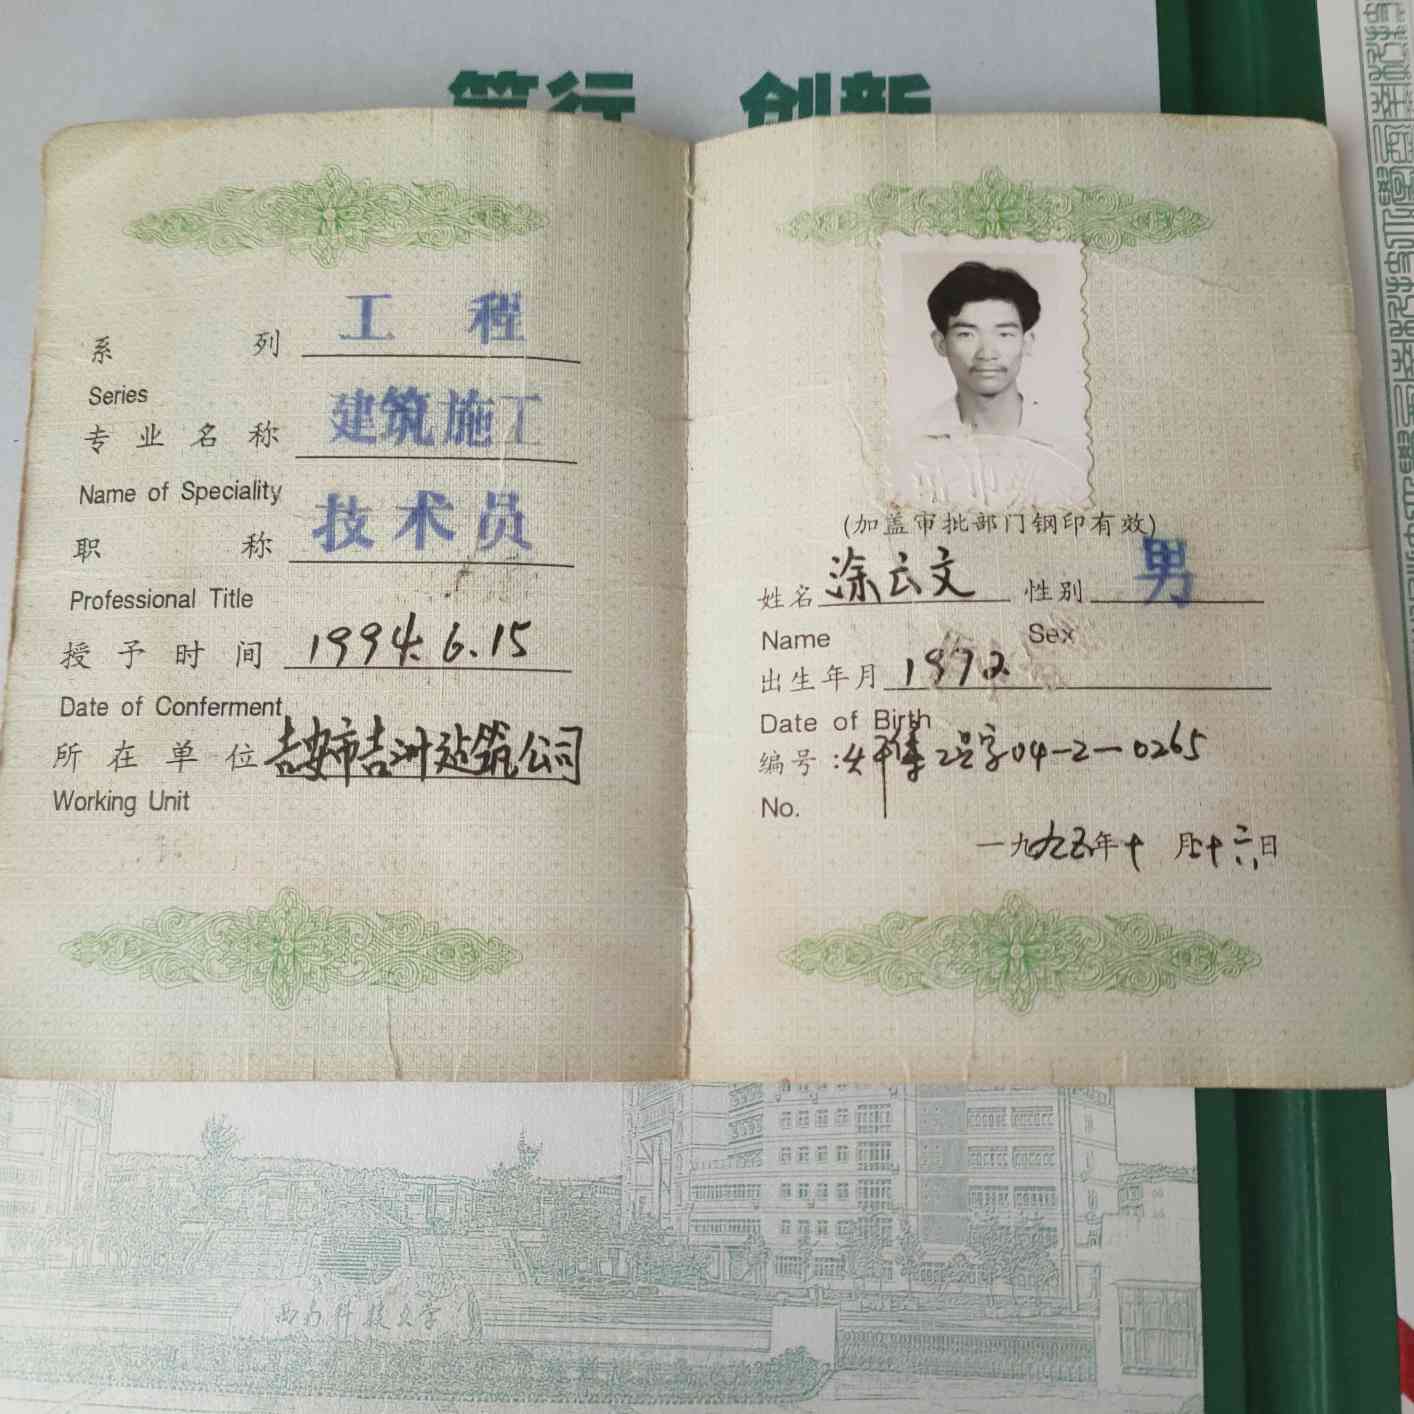 笃行 创新
系列 工程
Series
专业名称 建筑施工
Name of Speciality
职称 技术员
Professional Title
授予时间 1994.6.15
Date of Conferment
所在单位 吉安市吉州建筑公司
Working Unit
(加盖审批部门钢印有效)
姓名 涂云文 性别 男
Name Sex
出生年月 1972
Date of Birth
编号: 2号字04-2-0265
No.
一九九五年十月二十六日
西南科技大学